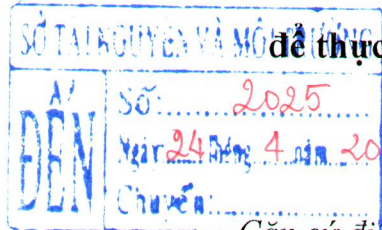 SỞ TÀI NGUYÊN VÀ MÔI TRƯỜNG
để thực
ĐẾN
Số: 2025
Ngày 24 Tháng 4 năm 20
Chuyển:
Căn cứ